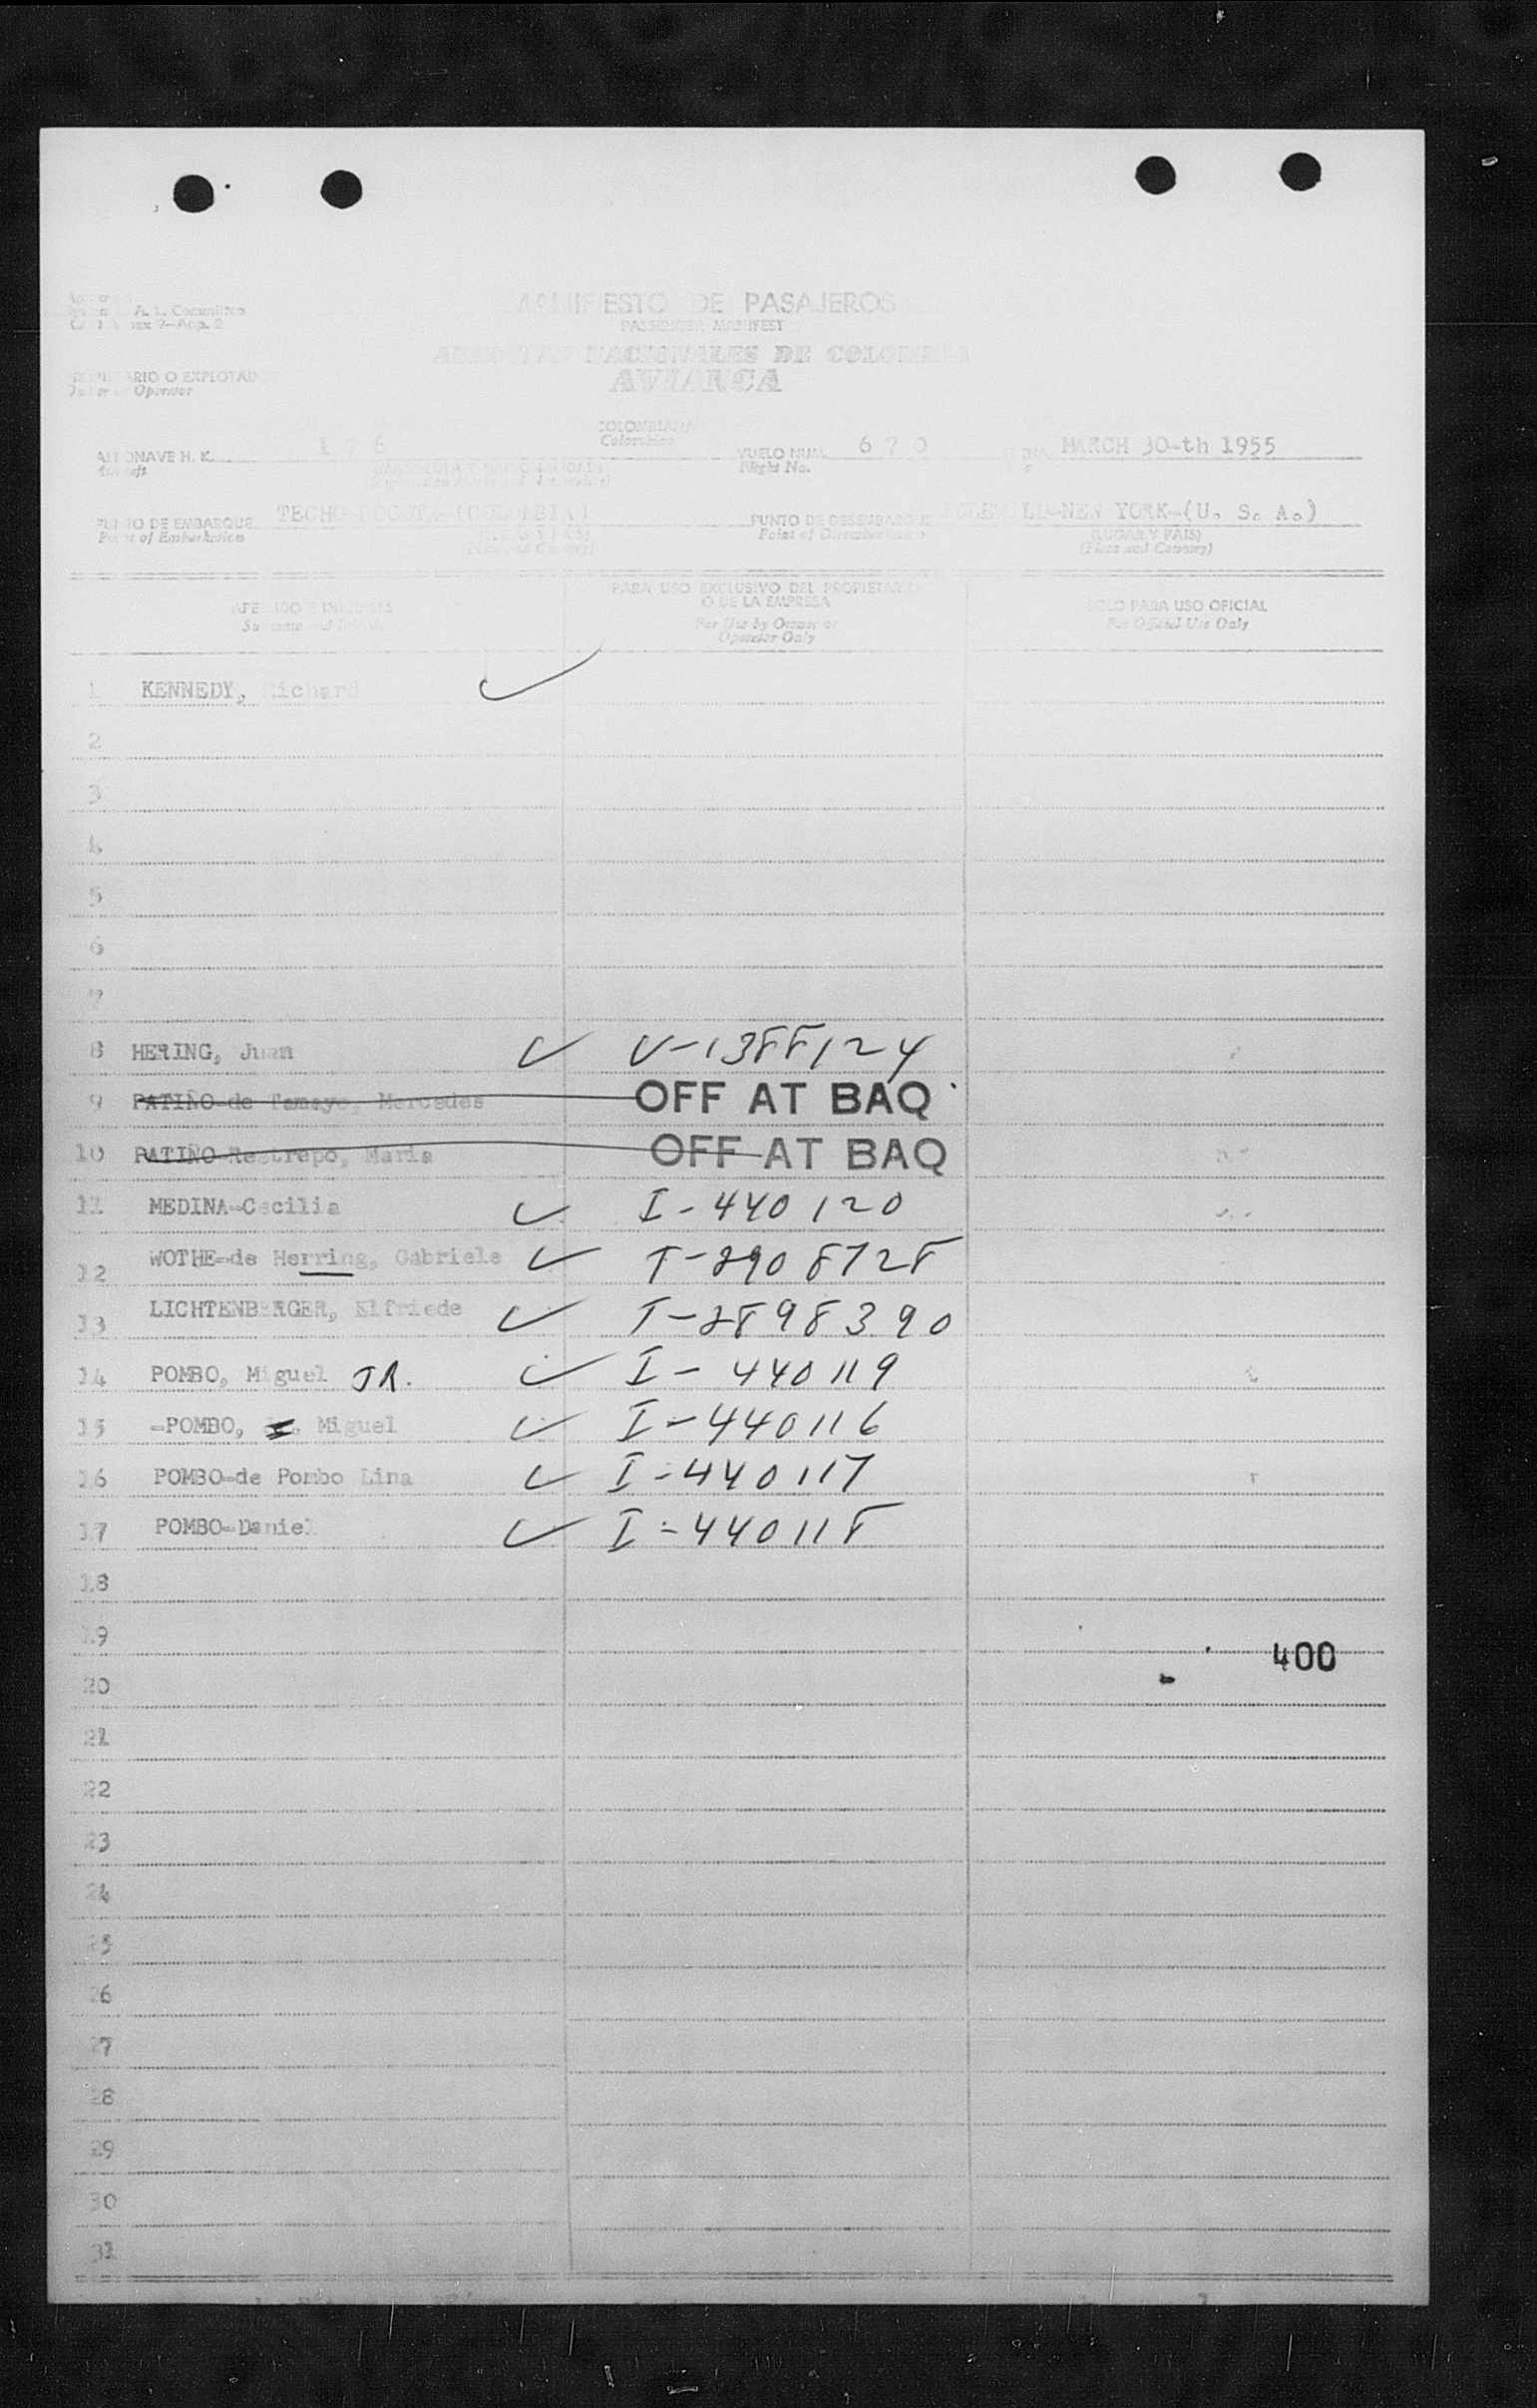 A. L. Committee
MANIFIESTO DE PASAJEROS
PASSENGER MANIFEST
NACIONALES DE COLOMBIA
AVIANCA
PROPIETARIO O EXPLOTADOR
Operator
COLOMBIANA
Colombian
AERONAVE H. K.
Aircraft
VUELO NUM. 6 7 0
Flight No.
MARCH 30-th 1955
PUNTO DE EMBARQUE TECHO BOGOTA-(COLOMBIA)
Point of Embarkation
PUNTO DE DESEMBARQUE NEW YORK-(U. S. A.)
Point of Disembarkation
(LUGAR Y PAIS)
(Place and Country)
APELLIDO E INICIALES
Surname and Initials
PARA USO EXCLUSIVO DEL PROPIETARIO
O DE LA EMPRESA
For Use by Owner or
Operator Only
SOLO PARA USO OFICIAL
For Official Use Only
1 KENNEDY, Richard ✓
2
3
4
5
6
7
8 HERING, Juan ✓ V-1388124
9 PATIÑO-de Tamayo, Mercedes OFF AT BAQ
10 PATIÑO-Restrepo, Maria OFF AT BAQ
11 MEDINA-Cecilia ✓ I-440120
12 WOTHE-de Herring, Gabriele ✓ T-2908728
13 LICHTENBERGER, Elfriede ✓ T-2898390
14 POMBO, Miguel JR. ✓ I-440119
15 -POMBO, Miguel ✓ I-440116
16 POMBO-de Pombo Lina ✓ I-440117
17 POMBO-Daniel ✓ I-440118
18
19
400
20
21
22
23
24
25
26
27
28
29
30
31